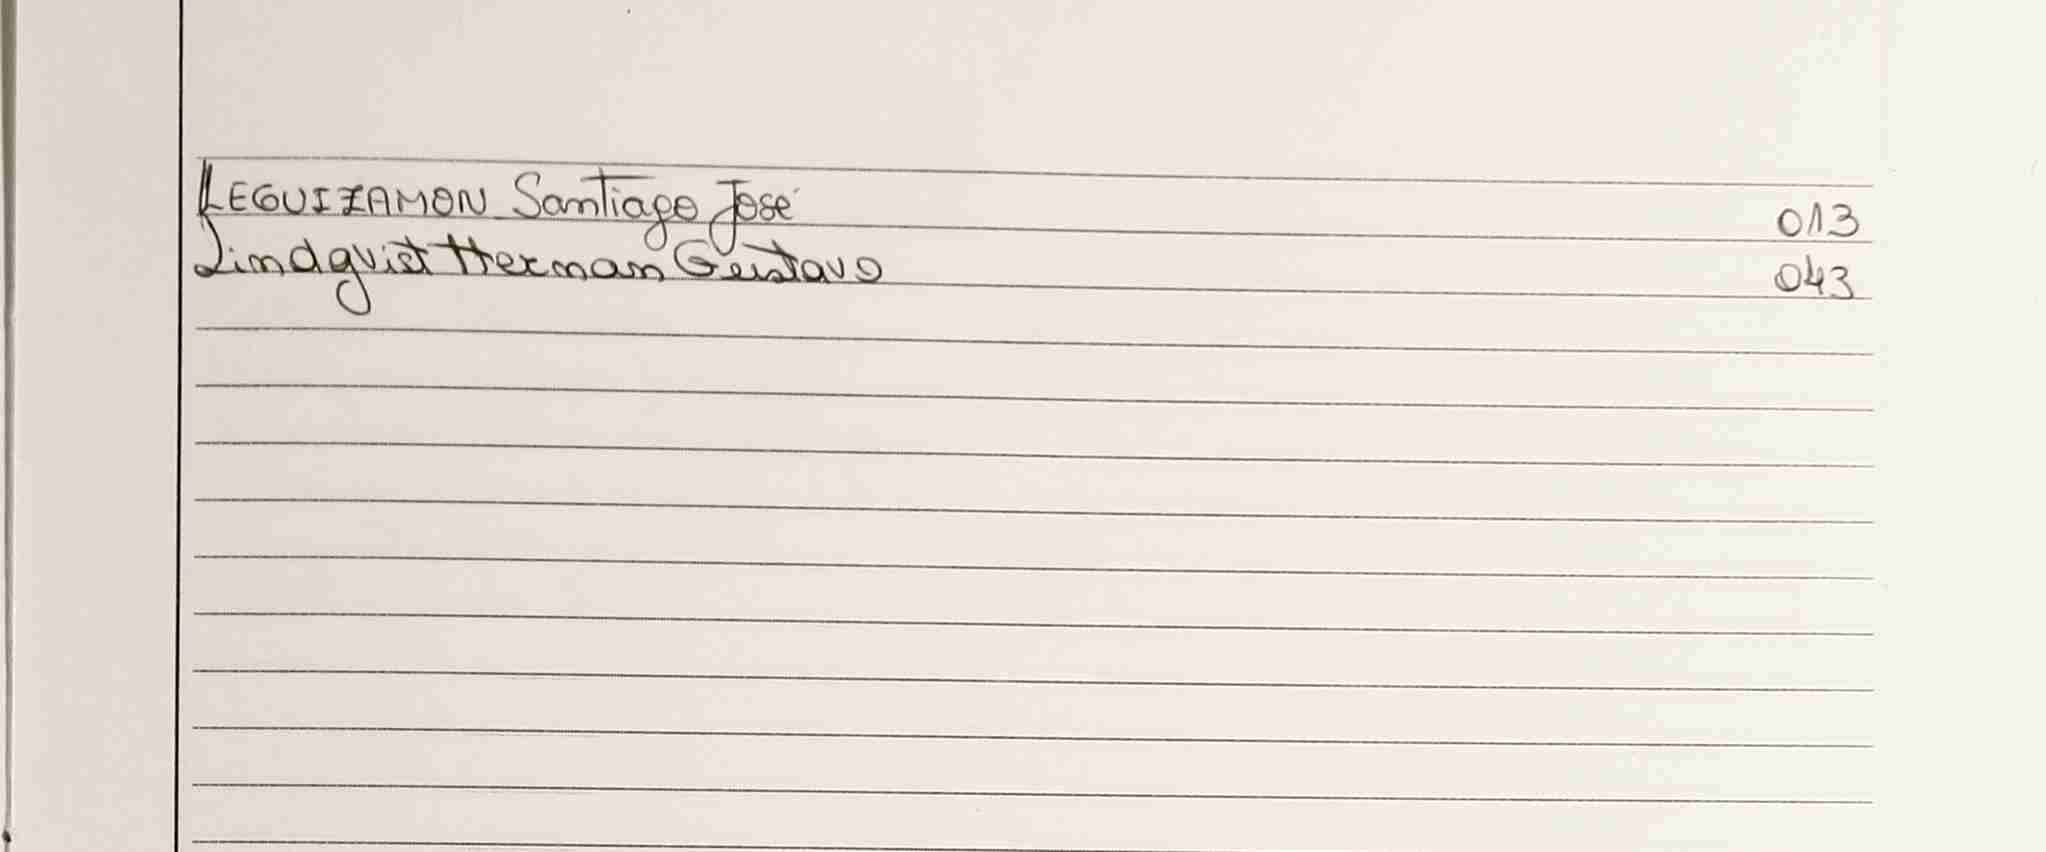 LEGUIZAMON Santiago José 013
Lindqvist Herman Gustavo 043